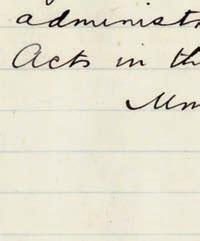 administr
Acts in th
Um